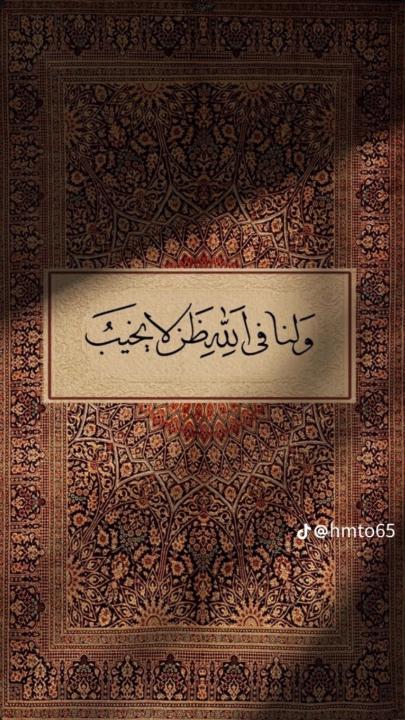 ولنا في اللهِ ظَنٌ لا يخيبُ
@hmto65